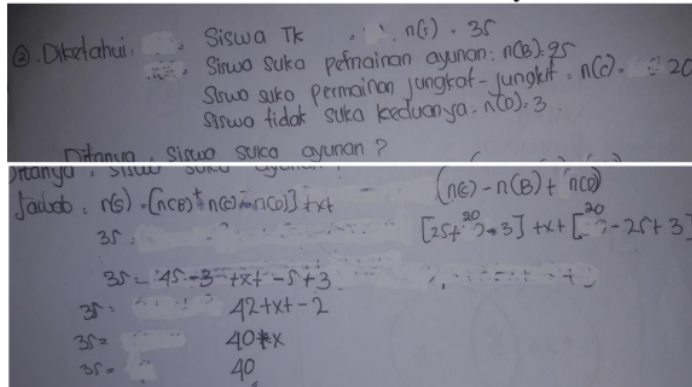 ② Diketahui: Siswa Tk : n(s) = 35
Siswa suka permainan ayunan: n(B) = 25
Siswa suka permainan jungkat-jungkit = n(C) = 20
Siswa tidak suka keduanya = n(D) = 3
Ditanya : Siswa suka ayunan ?
Jawab : n(s) = [n(B) + n(C) - n(D)] + x + (n(C) - n(B) + n(D))
35 = [25 + 20 - 3] + x + [20 - 25 + 3]
35 = 45 - 3 + x + -5 + 3
35 = 42 + x + -2
35 = 40 + x
35 = 40